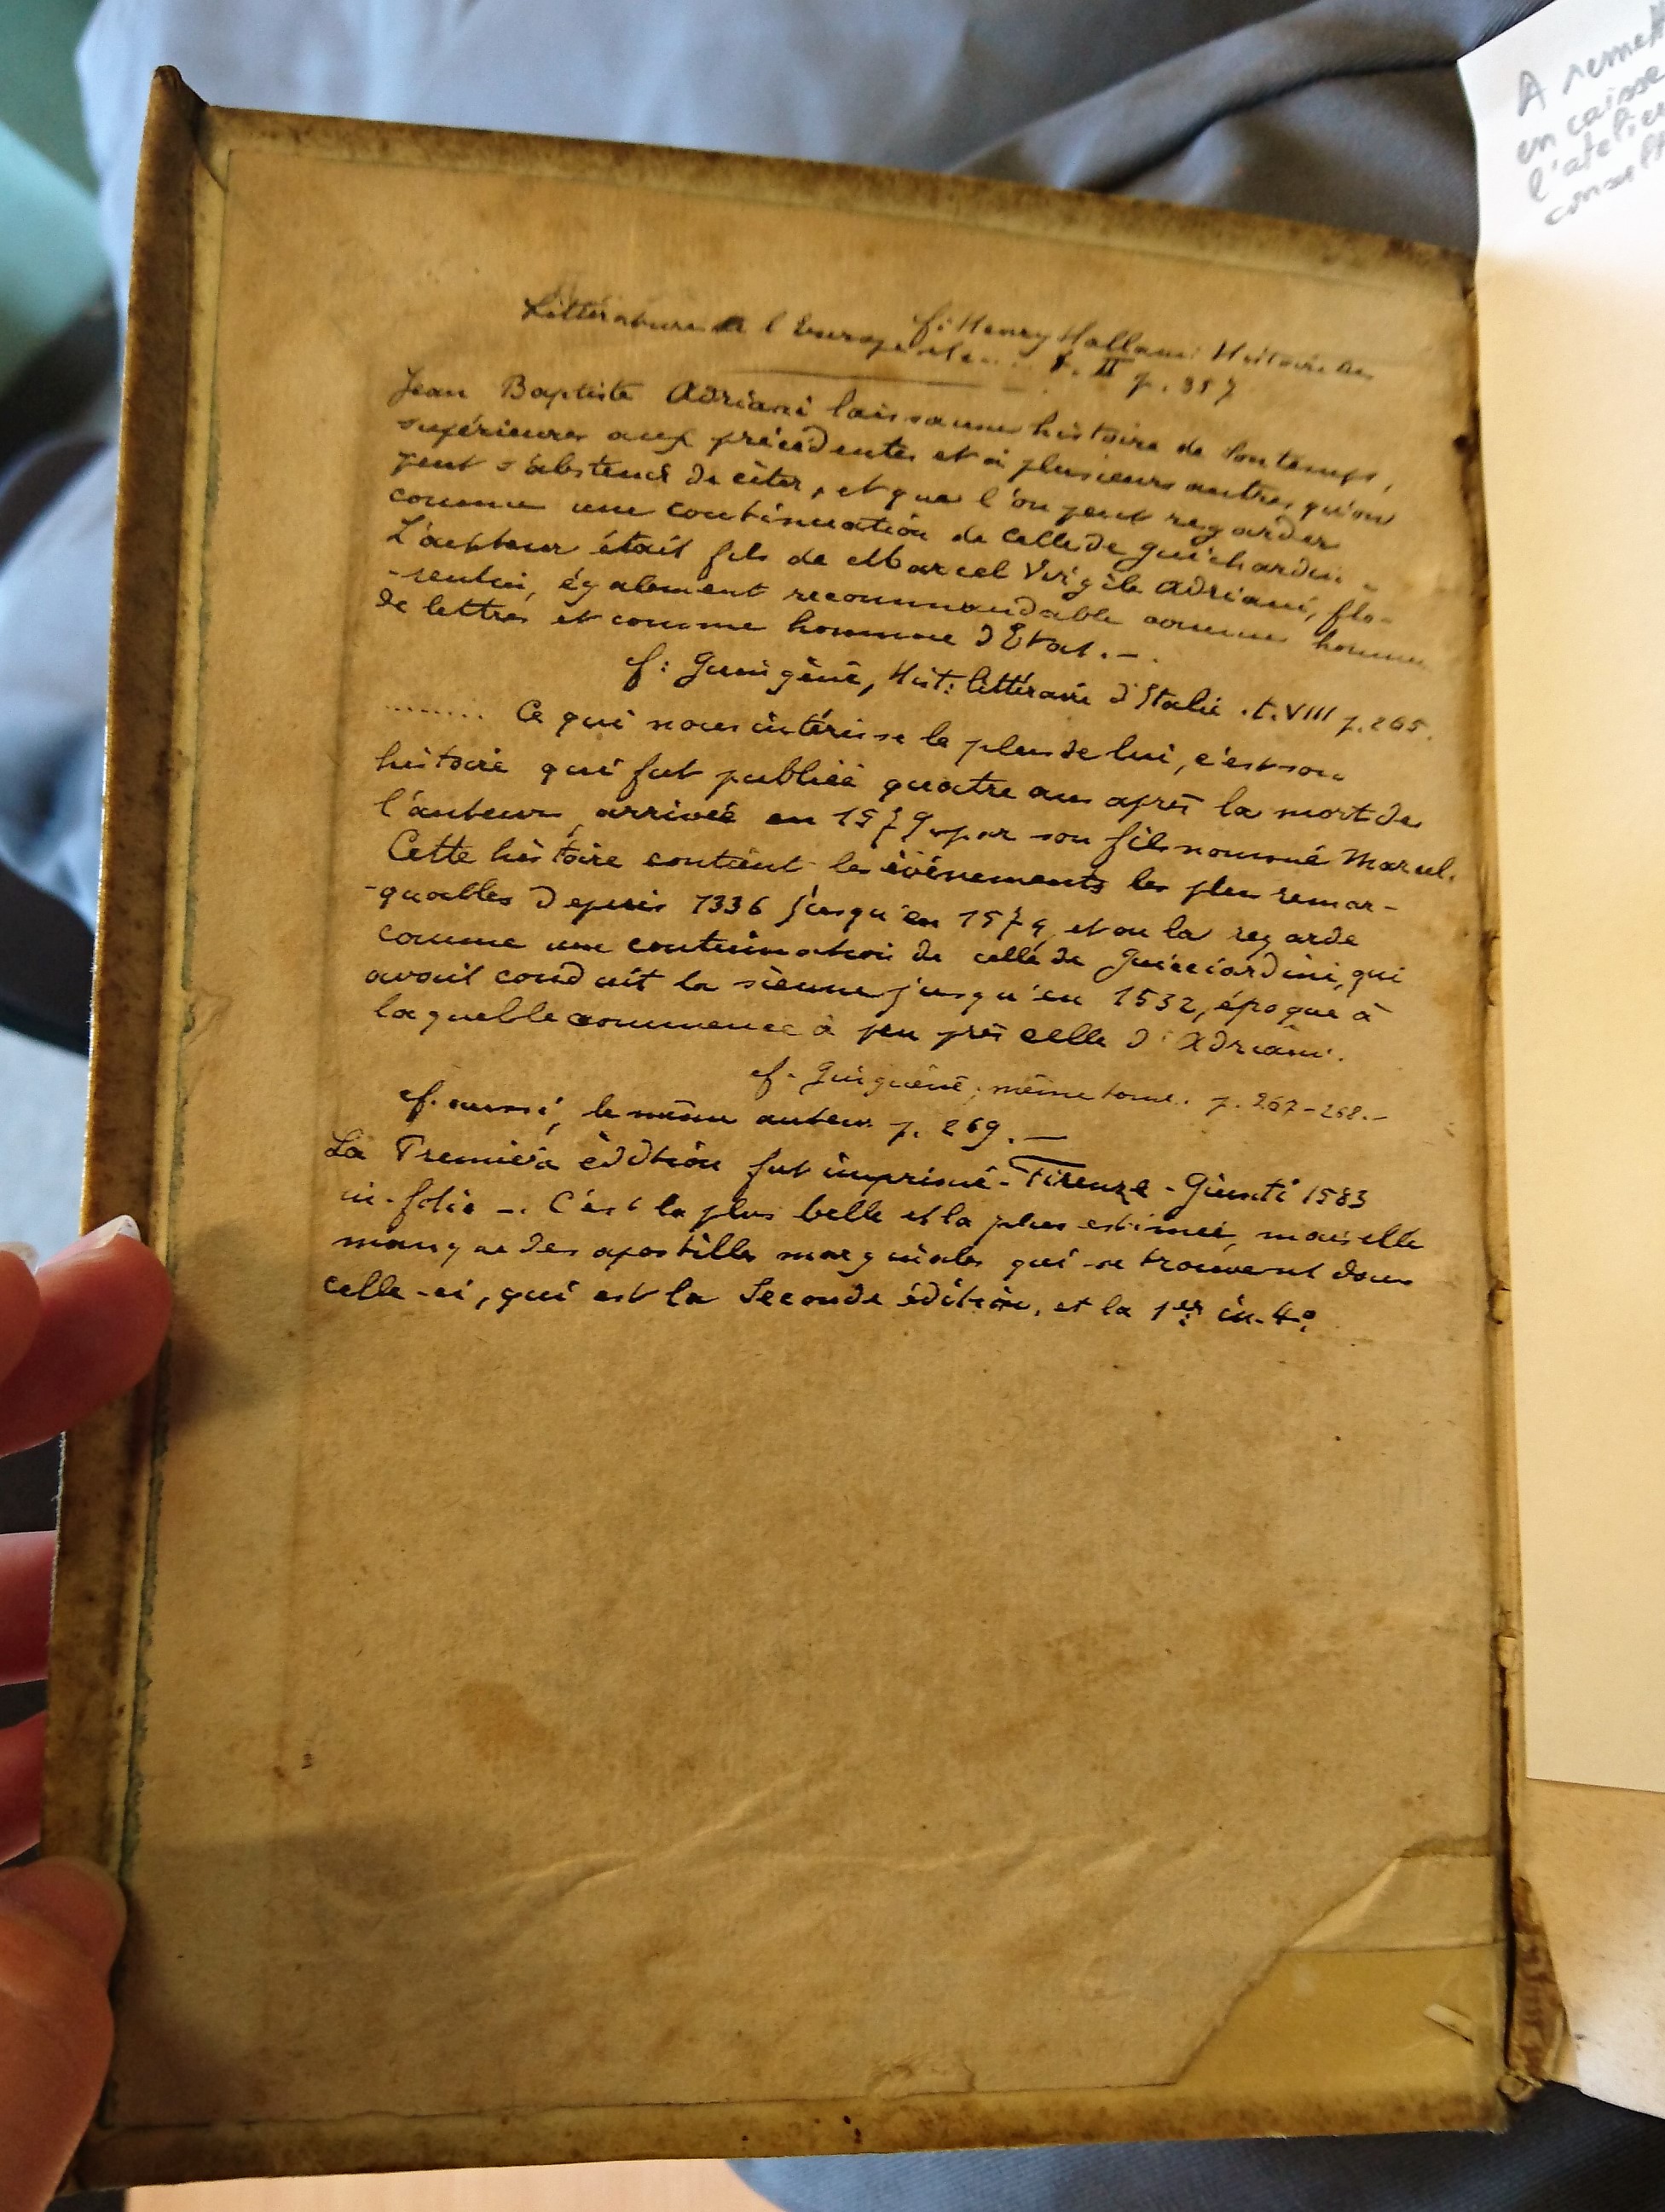 cf: Henry Hallam: Histoire de
Littérature de l'Europe etc... t. II p. 357
Jean Baptiste Adriani laissa une histoire de son temps,
supérieures aux précédentes et à plusieurs autres qu'on
peut s'abstenir de citer, et que l'on peut regarder
comme une continuation de celle de Guichardin.
L'auteur était fils de Marcel Virgile Adriani, flo-
-rentin, également recommandable comme homme
de lettres et comme homme d'Etat. —.
cf: Guinguéné, Hist: littéraire d'Italie. t. VIII p. 265.
........ Ce qui nous intéresse le plus de lui, c'est son
histoire qui fut publiée quatre ans après la mort de
l'auteur, arrivée en 1579, par son fils nommé Marcel.
Cette histoire contient les évènements les plus remar-
-quables depuis 1336 jusqu'en 1574, et on la regarde
comme une continuation de celle de Guicciardini, qui
avait conduit la sienne jusqu'en 1532, époque à
laquelle commence à peu près celle d'Adriani.
cf. Guinguéné, même tome. p. 267-268.-
cf. aussi, le même auteur p. 269. —
La Première édition fut imprimé - Firenze - Giunti 1583
in-folio —. C'est la plus belle et la plus estimée, mais elle
manque des apostilles marginales qui se trouvent dans
celle-ci, qui est la Seconde édition, et la 1er in-4º
A remett
en caisse
l'atelier
consult